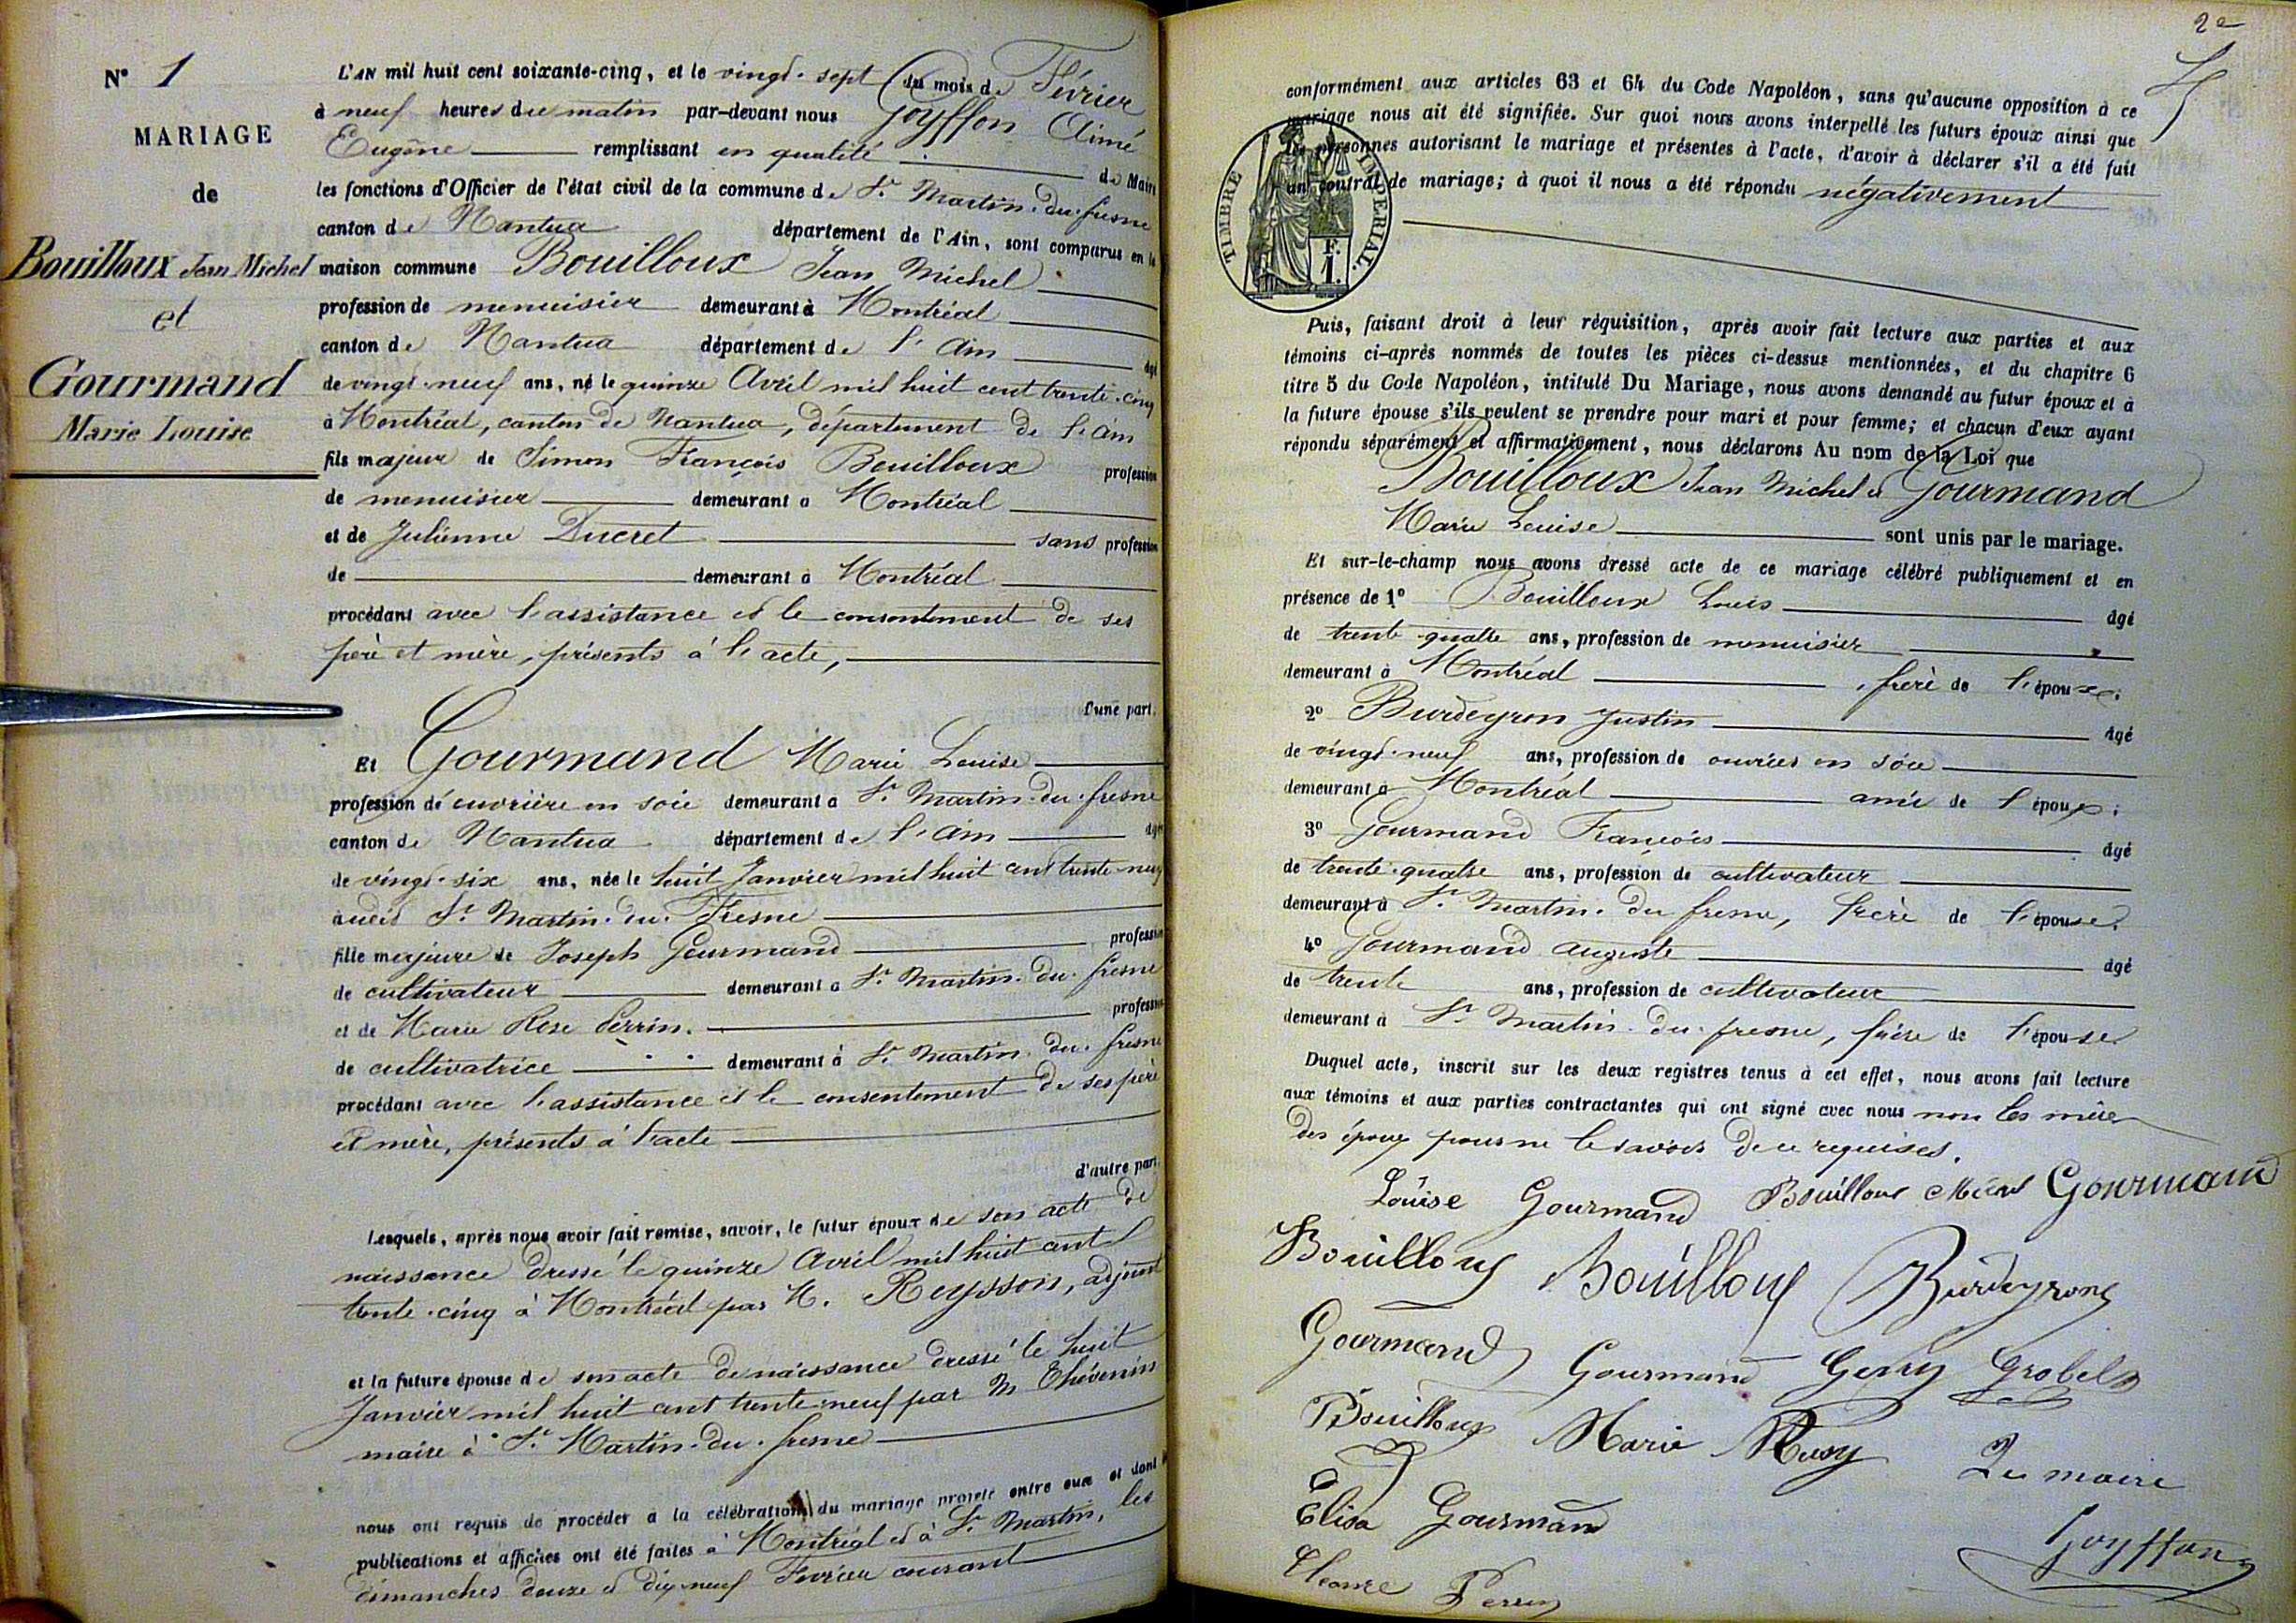 N° 1
MARIAGE
de
Bouilloux Jean Michel
et
Gourmand
Marie Louise
L'AN mil huit cent soixante-cinq, et le vingt-sept du mois de Février
à neuf heures du matin par-devant nous Goyffon Aimé
Eugène remplissant en qualité de Maire
les fonctions d'Officier de l'état civil de la commune de St Martin-du-fresne
canton de Nantua département de l'Ain, sont comparus en la
maison commune Bouilloux Jean Michel
profession de menuisier demeurant à Montréal
canton de Nantua département de l'Ain âgé
de vingt-neuf ans, né le quinze Avril mil huit cent trente-cinq
à Montréal, canton de Nantua, département de l'Ain
fils majeur de Simon François Bouilloux profession
de menuisier demeurant à Montréal
et de Julienne Ducret sans profession
de demeurant à Montréal
procédant avec l'assistance et le consentement de ses
père et mère, présents à l'acte,
D'une part.
Et Gourmand Marie Louise
profession d'ouvrière en soie demeurant à St Martin-du-fresne
canton de Nantua département de l'Ain âgée
de vingt-six ans, née le huit Janvier mil huit cent trente-neuf
audit St Martin-du-Fresne
fille majeure de Joseph Gourmand profession
de cultivateur demeurant à St Martin-du-fresne
et de Marie Rose Perrin. profession
de cultivatrice demeurant à St Martin-du-fresne
procédant avec l'assistance et le consentement de ses père
et mère, présents à l'acte
d'autre part.
Lesquels, après nous avoir fait remise, savoir, le futur époux de son acte de
naissance dressé le quinze Avril mil huit cent
trente-cinq à Montréal par M. Reysson, adjoint
et la future épouse de son acte de naissance dressé le huit
Janvier mil huit cent trente-neuf par M Thévenin
maire à St Martin-du-fresne
nous ont requis de procéder à la célébration du mariage projeté entre eux et dont
publications et affiches ont été faites à Montréal et à St Martin, les
dimanches douze et dix-neuf Février courant
conformément aux articles 63 et 64 du Code Napoléon, sans qu'aucune opposition à ce
mariage nous ait été signifiée. Sur quoi nous avons interpellé les futurs époux ainsi que
les personnes autorisant le mariage et présentes à l'acte, d'avoir à déclarer s'il a été fait
un contrat de mariage; à quoi il nous a été répondu négativement
TIMBRE IMPÉRIAL.
F.
1.
Puis, faisant droit à leur réquisition, après avoir fait lecture aux parties et aux
témoins ci-après nommés de toutes les pièces ci-dessus mentionnées, et du chapitre 6
titre 5 du Code Napoléon, intitulé Du Mariage, nous avons demandé au futur époux et à
la future épouse s'ils veulent se prendre pour mari et pour femme; et chacun d'eux ayant
répondu séparément et affirmativement, nous déclarons Au nom de la Loi que
Bouilloux Jean Michel et Gourmand
Marie Louise sont unis par le mariage.
Et sur-le-champ nous avons dressé acte de ce mariage célébré publiquement et en
présence de 1° Bouilloux Louis âgé
de trente-quatre ans, profession de menuisier
demeurant à Montréal, frère de l'époux;
2° Burdeyron Justin âgé
de vingt-neuf ans, profession de ouvrier en soie
demeurant à Montréal ami de l'époux;
3° Gourmand François âgé
de trente-quatre ans, profession de cultivateur
demeurant à St Martin-du fresne, frère de l'épouse.
4° Gourmand Auguste âgé
de trente ans, profession de cultivateur
demeurant à St Martin-du-fresne, frère de l'épouse
Duquel acte, inscrit sur les deux registres tenus à cet effet, nous avons fait lecture
aux témoins et aux parties contractantes qui ont signé avec nous non les mères
des époux pour ne le savoir de ce requises.
Louise Gourmand Bouilloux Michel Gourmand
Bouilloux Bouilloux Burdeyron
Gourmand Gourmand Grobel
Bouilloux Marie Le maire
Elisa Gourmand
Goyffon
Perrin